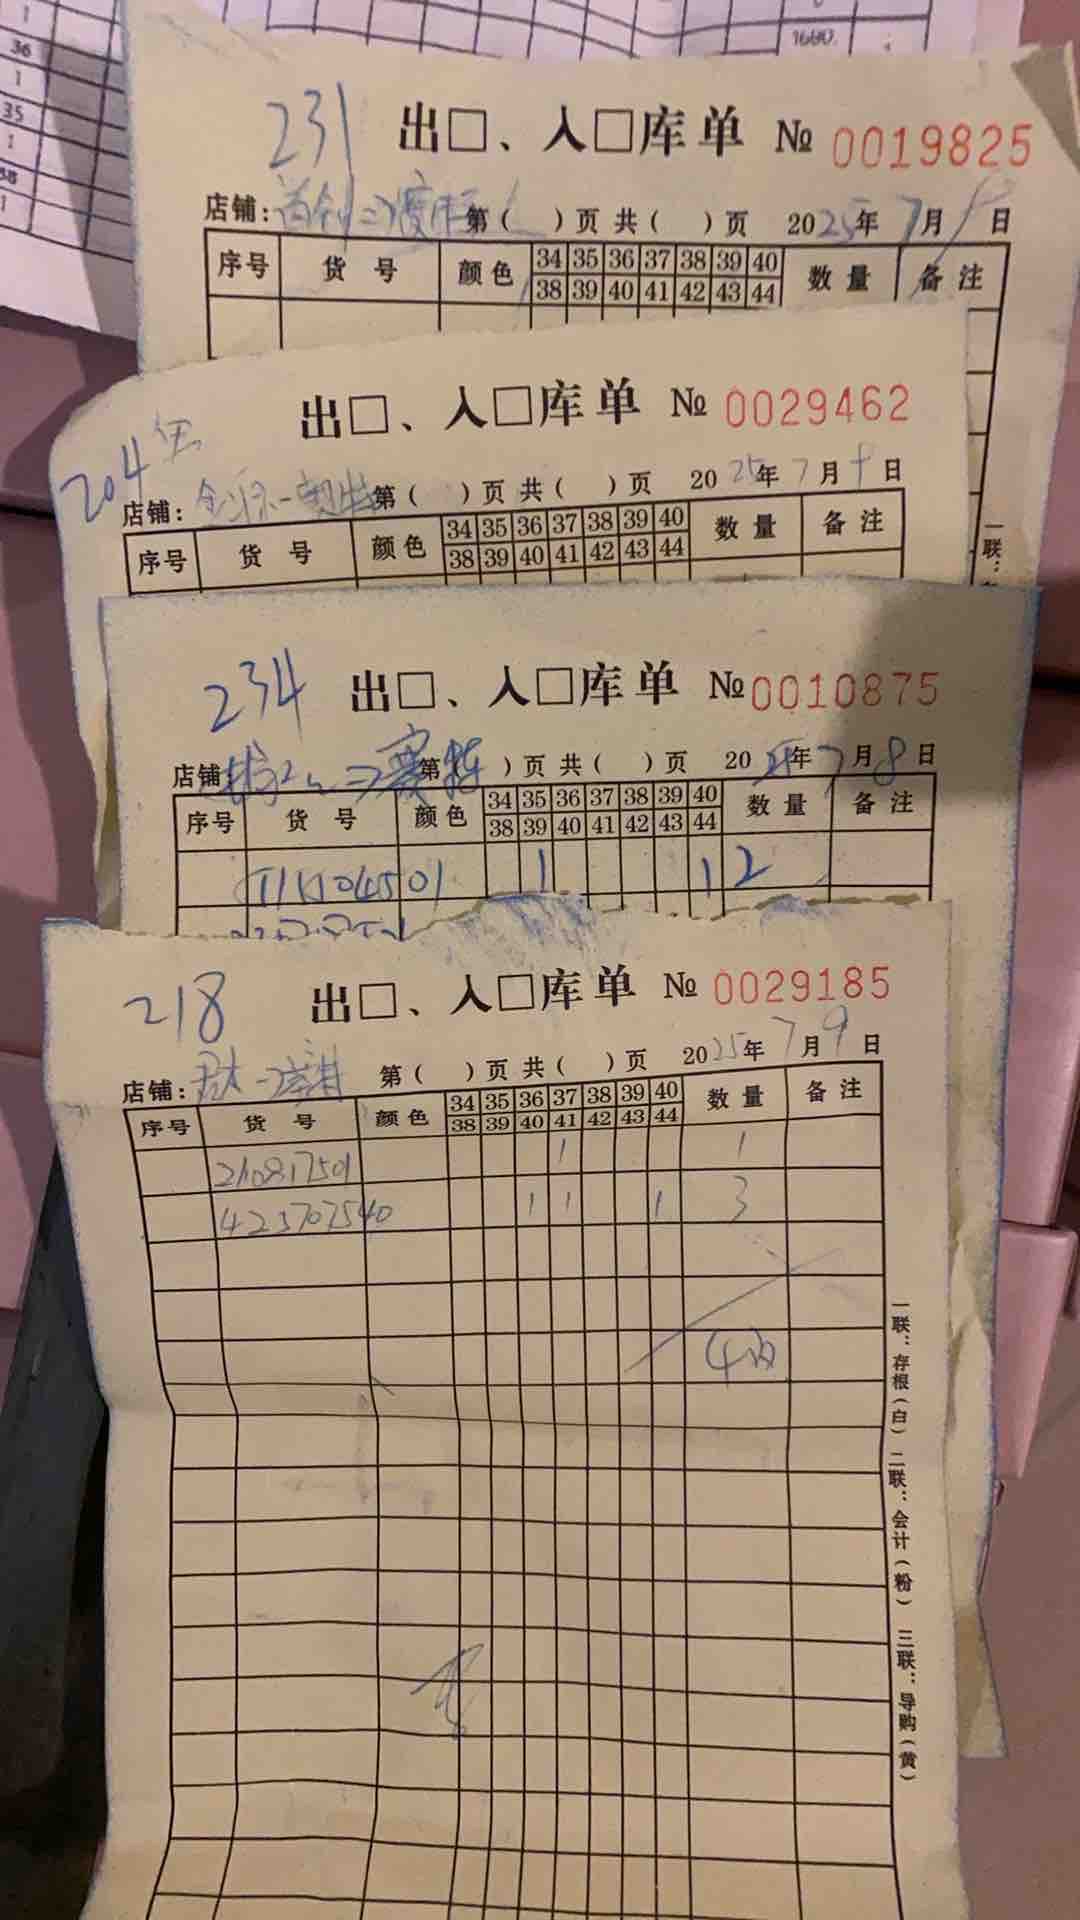 1
36
1
35
1
38
1
1660.
231 出□、入□库单 № 0019825
店铺: 第( )页 共( )页 2025年7月 日
序号 货号 颜色 34 35 36 37 38 39 40 数量 备注
38 39 40 41 42 43 44
204 出□、入□库单 № 0029462
店铺: 第( )页 共( )页 2025年7月9日
序号 货号 颜色 34 35 36 37 38 39 40 数量 备注
38 39 40 41 42 43 44
一联:
234 出□、入□库单 № 0010875
店铺 第 )页 共( )页 2025年7月8日
序号 货号 颜色 34 35 36 37 38 39 40 数量 备注
38 39 40 41 42 43 44
1 1 2
218 出□、入□库单 № 0029185
店铺: 第( )页 共( )页 2025年7月9日
序号 货号 颜色 34 35 36 37 38 39 40 数量 备注
38 39 40 41 42 43 44
210817501 1 1
423707540 1 1 1 3
4双
一联:存根(白) 二联:会计(粉) 三联:导购(黄)